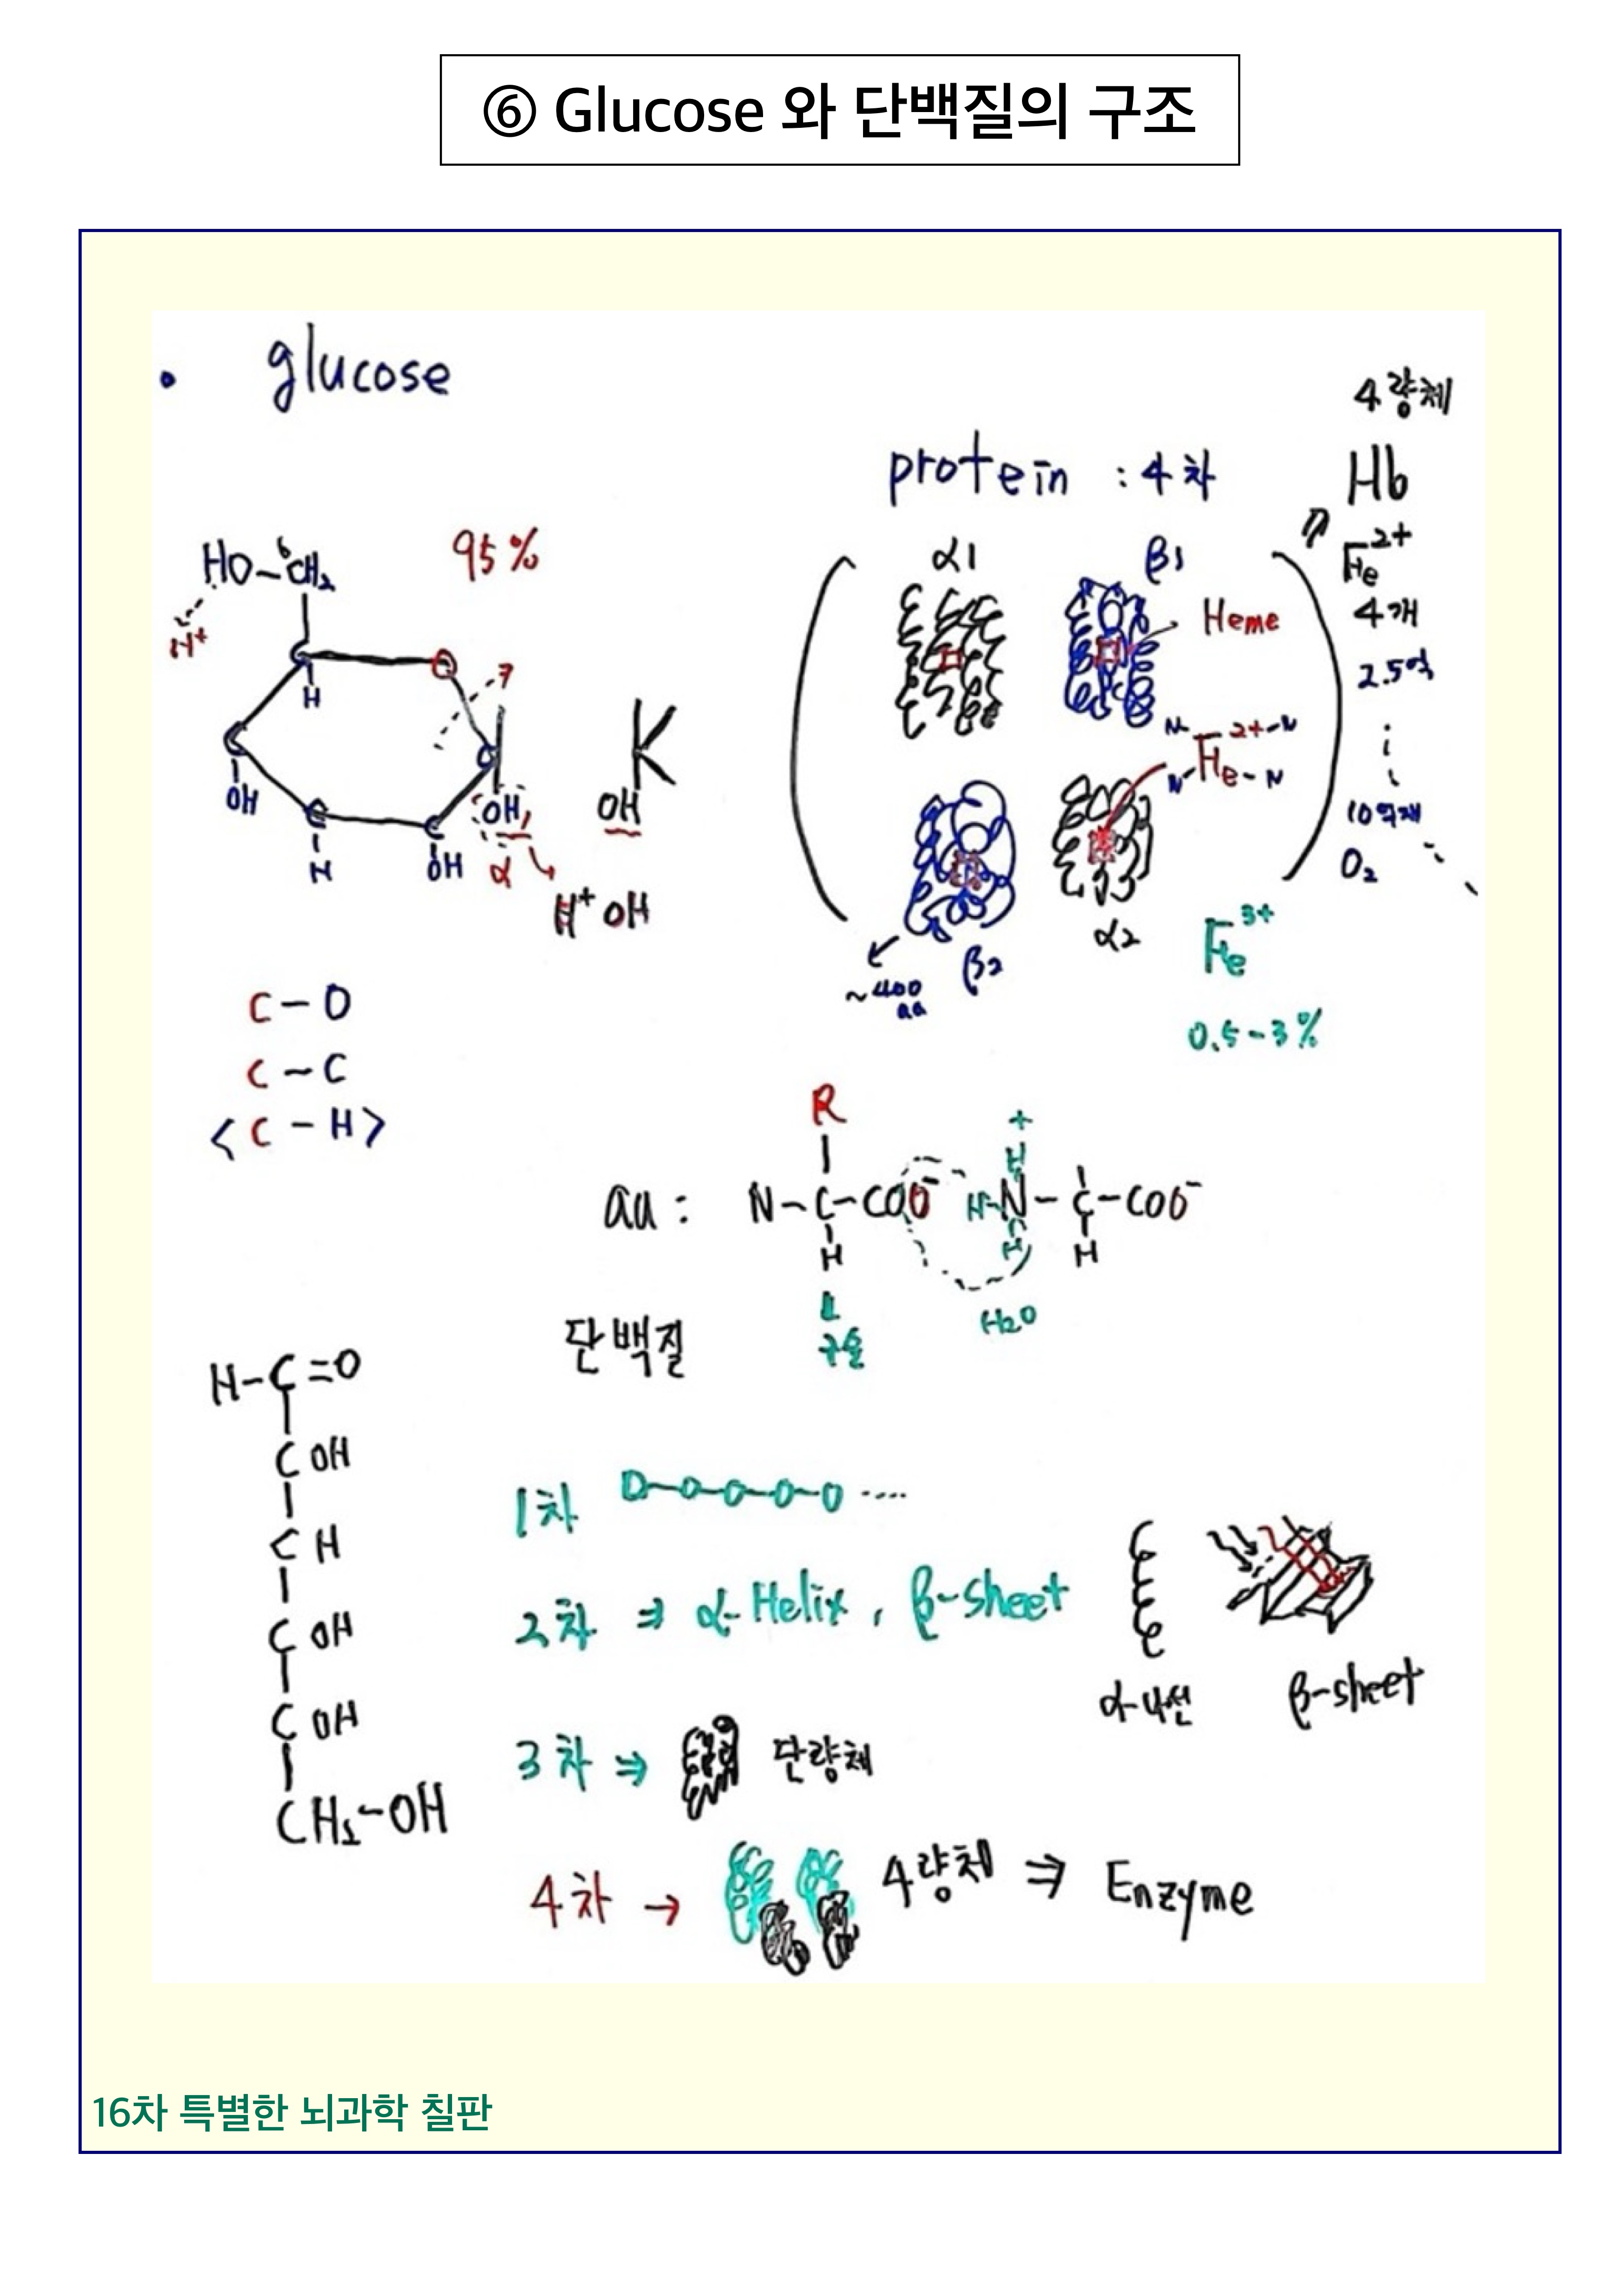 ⑥ Glucose 와 단백질의 구조
• glucose
4량체
protein : 4차
Hb
Fe2+
4개
2.5억
10억개
O2
α1
β1
Heme
N N
Fe2+
N N
β2
α2
~400
aa
Fe3+
0.5-3%
95%
HO-6CH2
H+
O
7
C
H
C
OH
C
H
C
OH
C
OH
α
H+ OH
K
OH
C-O
C-C
<C-H>
R
aa : N-C-COO- H-N-C-COO-
+
H
H
H
H
H2O
구슬
단백질
H-C=O
C OH
C H
C OH
C OH
CH2-OH
1차
2차 ⇒ α-Helix, β-sheet
α-나선
β-sheet
3차 ⇒ 단량체
4차 → 4량체 ⇒ Enzyme
16차 특별한 뇌과학 칠판